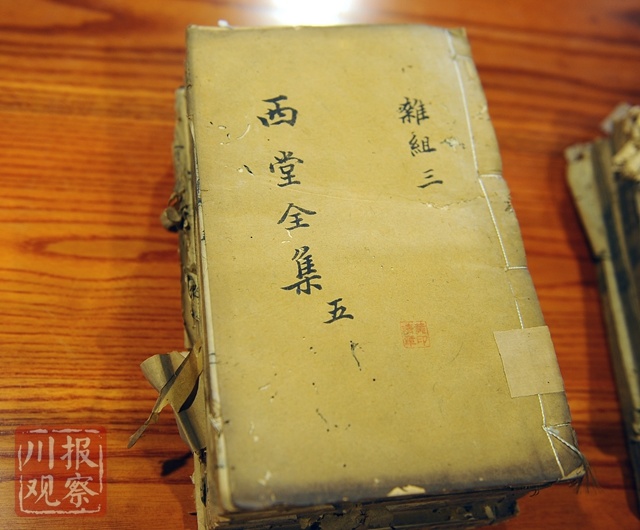 雜組三
西堂全集五
川报
观察